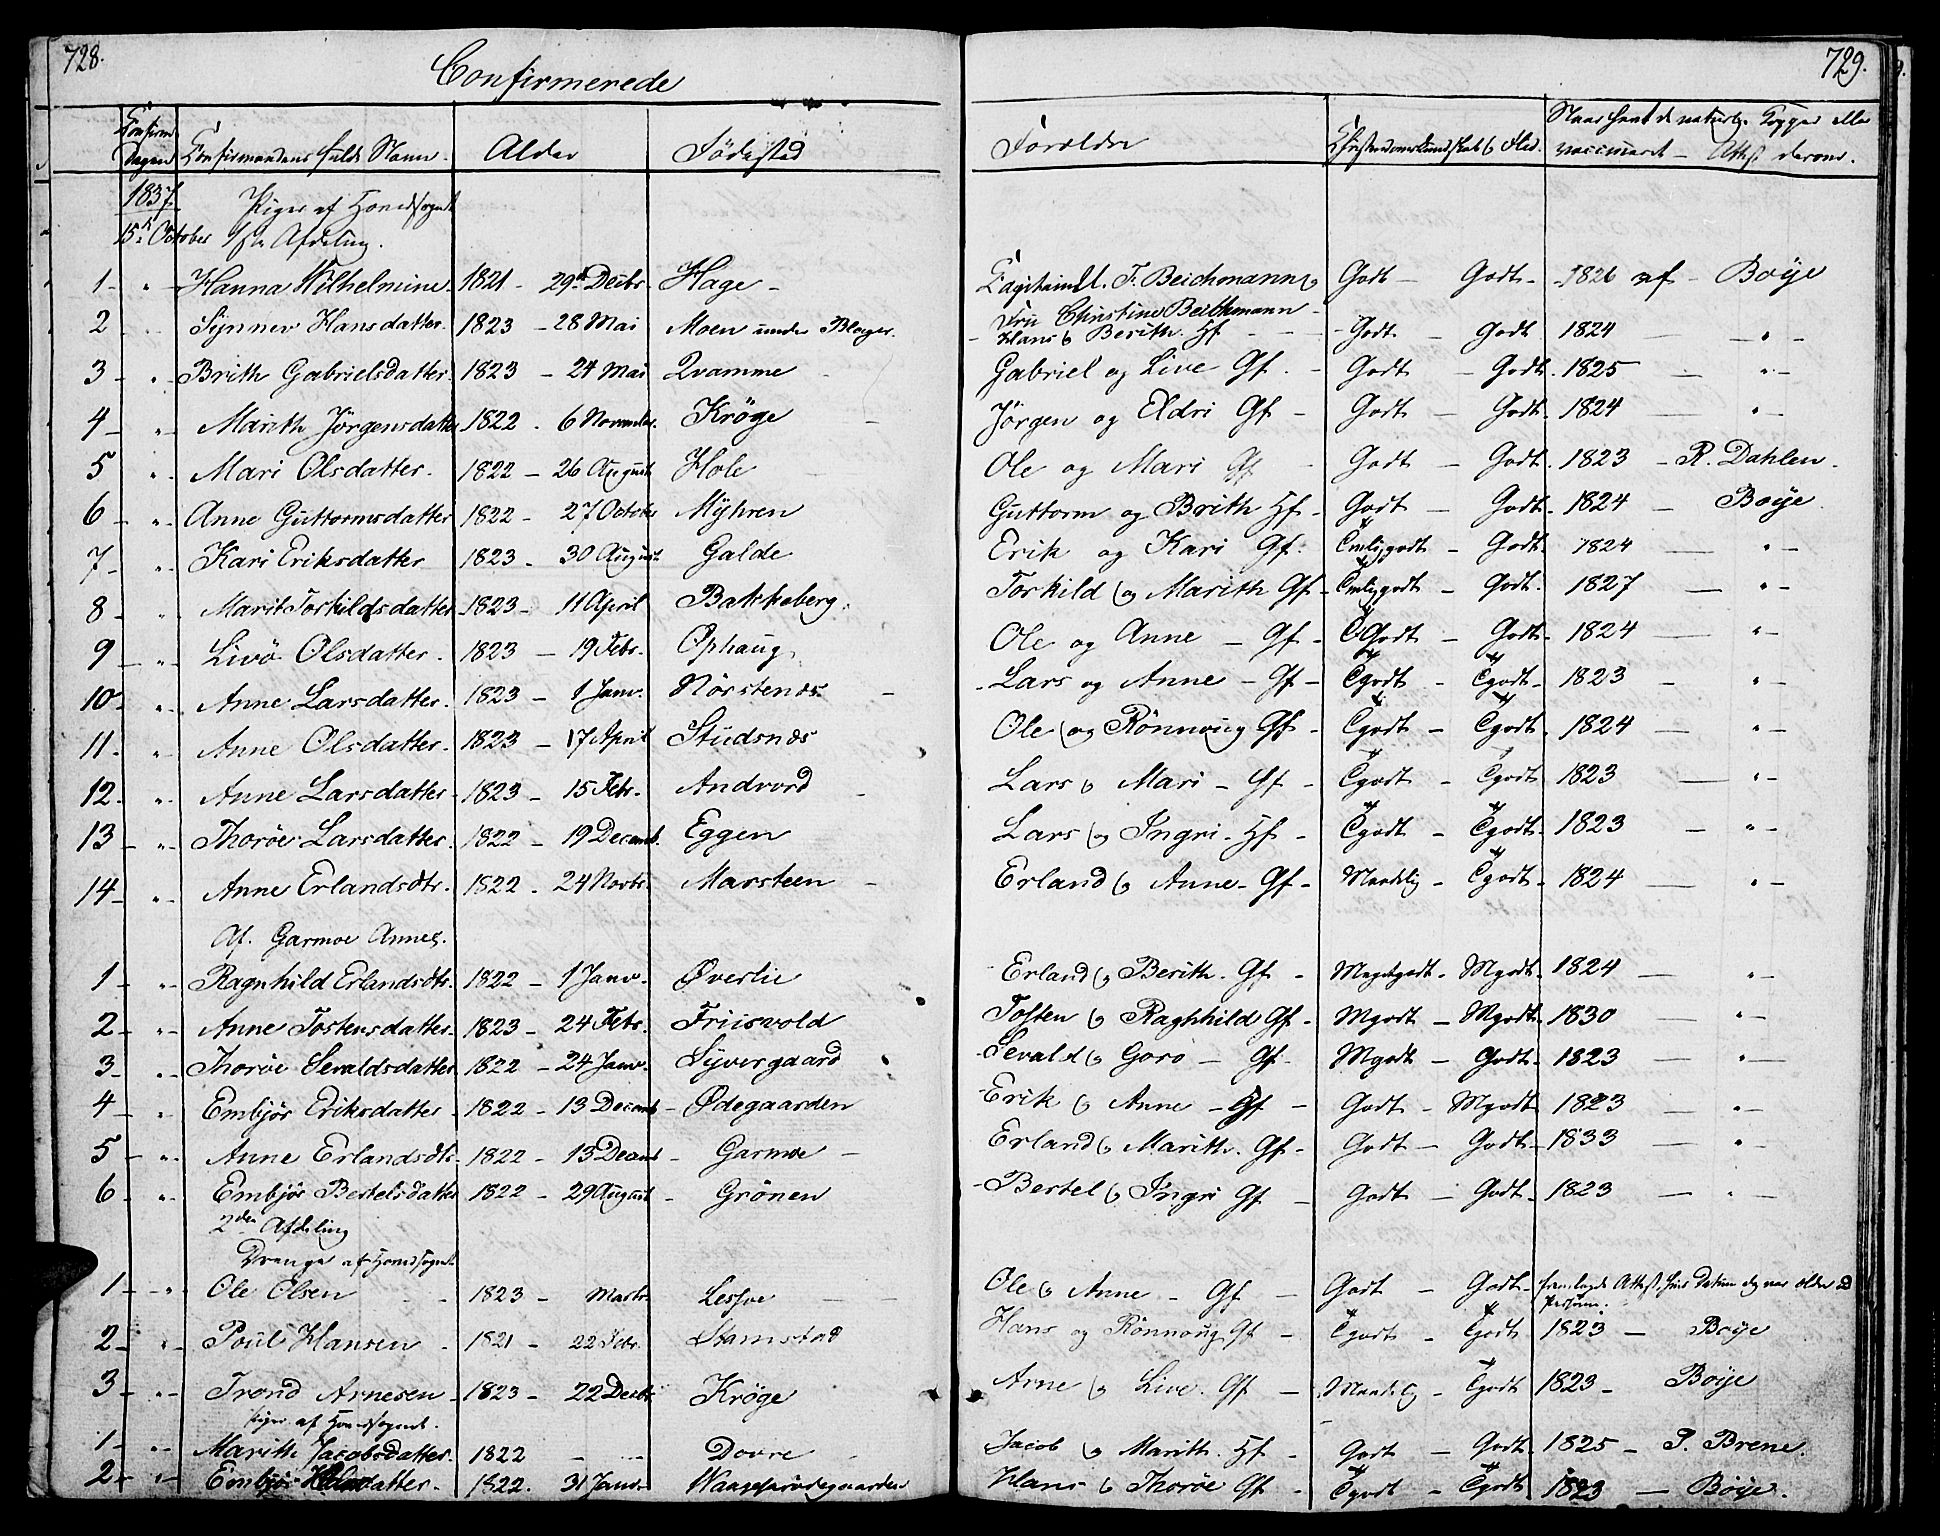 728.
Confirmerede
729.
Confirm. Dagen Confirmandens fulde Navn. Alder Fødested Forældre Christendomskundskab og Flid. Naar havt de naturlige Kopper eller vaccineret - Attest derom.
1837. Piger af Hovedsognet
15de October 1ste Afdeling.
1 - " - Hanna Wilhelmine. 1821 - 29de Decbr. Hage - Capitain F. Beichmann og Godt - Godt - 1826 af - Boije
Fru Christine Beichmann -
2 - " Synnev Hansdatter. 1823 - 28 Mai Moen under Blager. Hans og Berith Hf - Godt - Godt 1824 - " -
3 - " - Brith Gabrielsdatter. 1823 - 24 Mai Qvamme - Gabriel og Live Gf. - Godt - Godt. 1825 - " -
4 - " - Marith Jörgensdatter 1822 - 6 November. Kröge - Jörgen og Eldri Gf - Godt - Godt. 1824 - " -
5 " - Mari Olsdatter. 1822 - 26 August Hole - Ole og Mari Gf - Godt - Godt. 1823 - R. Dahlen.
6 - " - Anne Guttormsdatter 1822 - 27 October Myhren Guttorm og Brith Hf - Godt - Godt. 1824 - Boije
7 - " - Kari Eriksdatter 1823 - 30 August Galde Erik og Kari Gf. Tmligodt - Godt. 1824 - " -
8 - " Marit Torkildsdatter 1823 - 11 April Bakkeberg. Torkild og Marith Gf - Tmligodt - Godt. 1827 - " -
9 - " - Livö Olsdatter. 1823 - 19 Febr. Ophaug Ole og Anne - Gf - Tgodt - Godt - 1824 - " -
10 - " - Anne Larsdatter. 1823 - 1 Janv. Nörstenæs - Lars og Anne - Gf - Tgodt - Tgodt - 1823 - "
11. " - Anne Olsdatter. 1823 - 17 April Studsnæs Ole og Rönnoug Gf - Tgodt - Tgodt. 1824 - " -
12. " - Anne Larsdatter - 1823 - 15 Febr. Andvord - Lars og Mari - Gf - Tgodt - Tgodt 1823 - " -
13 - " - Thoröe Larsdatter. 1822 - 19 Decemb. Eggen Lars og Ingri - Hf - Tgodt - Tgodt - 1823 - " -
14 - " - Anne Erlandsdtr. 1822 - 24 Novbr. Marsteen - Erland og Anne - Gf - Maadelig - Tgodt - 1824 - " -
Af. Garmoe Annex.
1 - " - Ragnhild Erlandsdtr. 1822 - 1 Janv. Øverlie Erland og Berith. Gf - Megetgodt - Mgodt - 1824 - " -
2 - " - Anne Tostensdatter. 1823 - 24 Febr. Friisvold Tosten og Raghhild Gf - Mgodt - Mgodt - 1830 - " -
3 - " - Thoröe Sevaldsdatter 1822 - 24 Janv. Syvergaard Sevald og Goro - Gf - Mgodt - Godt - 1823 - " -
4 - " Embjör Eriksdatter - 1822 - 13 Decemb - Ødegaarden Erik og Anne - Gf - Godt - Mgodt 1823 - " -
5 - " - Anne Erlandsdtr - 1822 - 13 Decemb - Garmoe - Erland og Marith. Gf - Godt - Godt - 1833 - "
6 " - Embjör Bertelsdatter 1822 - 29 August - Grönen Bertel og Ingri Gf - Godt - Godt - 1823 - " -
2den Afdeling
Drenge af Hovedsognet
1 - " Ole Olsen 1823 - Marts. Lesjoe - Ole og Anne - Gf - Godt - Godt - fremlagde Attest, hvis Datum dog var ældre
2 - " - Poul Hansen - 1821 - 22 Febr. Stamstad Hans og Rönnoug Gf - Tgodt - Tgodt 1823 - Boije
3 - " - Trond Arnesen - 1823 - 22 Decbr Kröge Arne og Live. Gf - Maadelig - Tgodt 1823 - Boije
Piger af Hovedsognet.
1 - " - Marith Jacobsdatter. 1822 - Dovre - Jacob og Marith. Hf - Godt - Godt - 1825 - P. Brene.
2 - " - Embjör datter. 1822. 31 Janv. Hans og Thoröe Gf - Tgodt - Tgodt - 1823 - Boije.